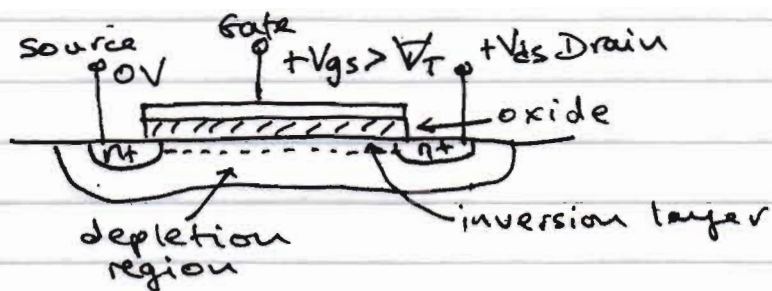 Gate
Source +Vgs > VT +Vds Drain
0V
oxide
n+ n+
inversion layer
depletion
region